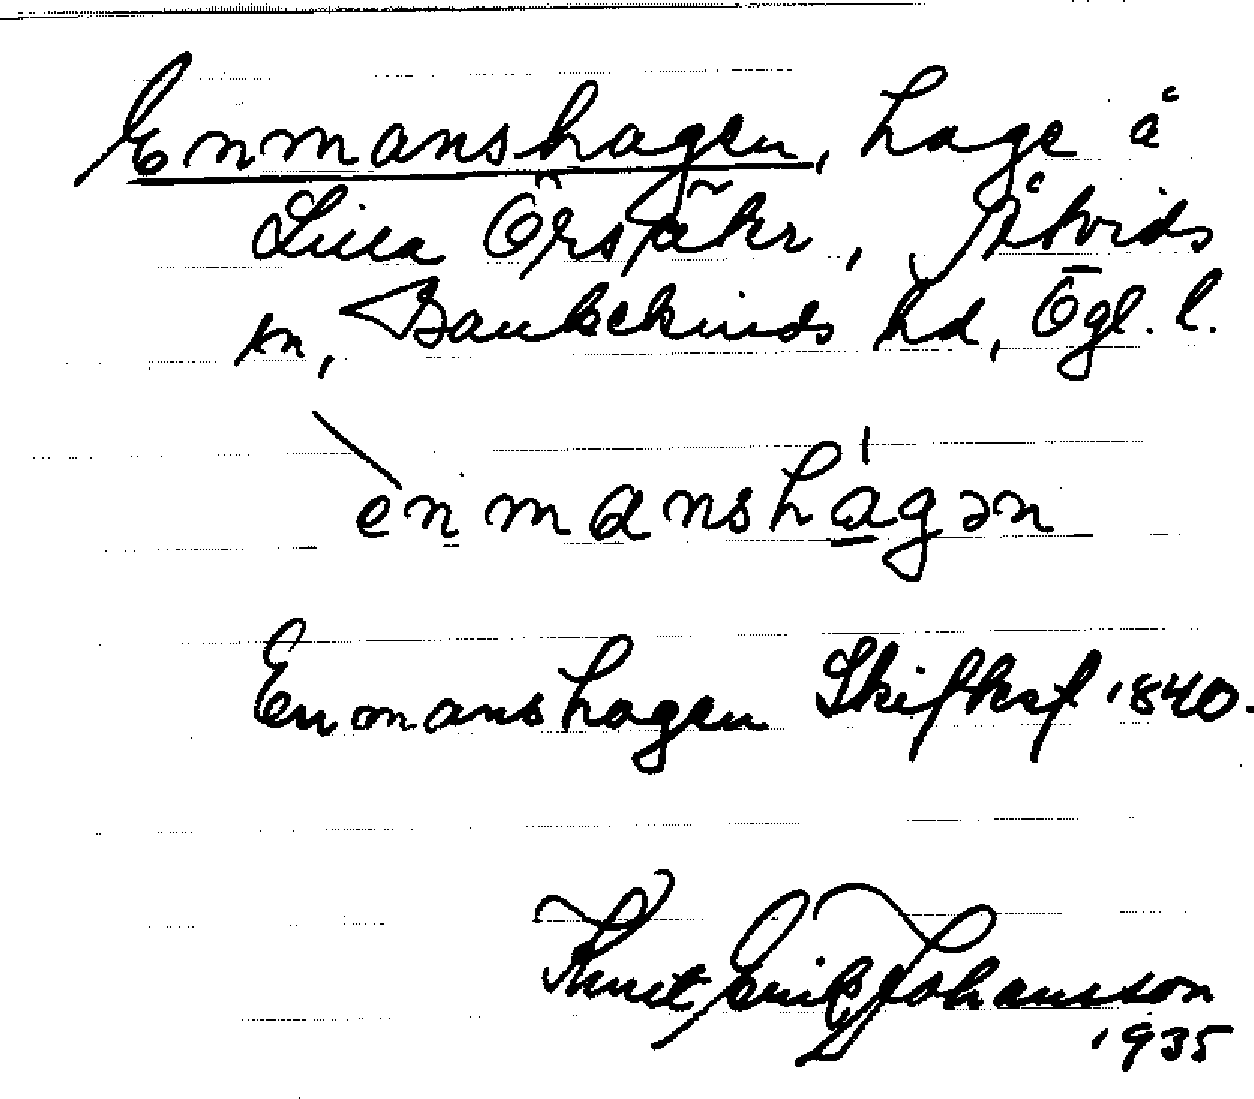 Enmanshagen, hage å
Lilla Örsäkr, Åtvids
sn, Bankekinds hd, Ögl. l.
enmanshágən
Enmanshagen Skifksf 1840.
Knut Erik Johansson
1935